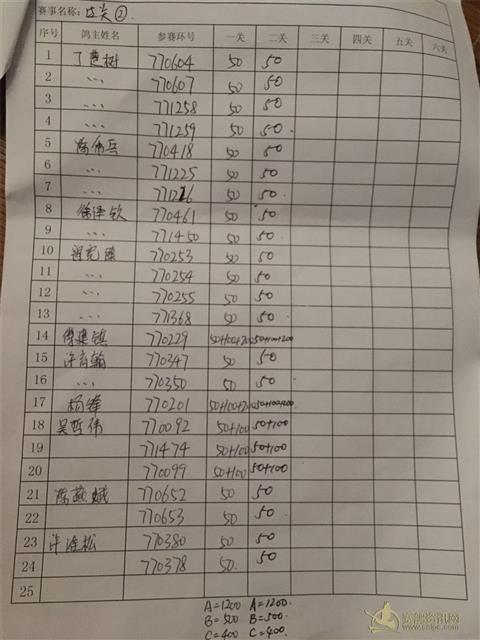 赛事名称: 过关②
序号 鸽主姓名 参赛环号 一关 二关 三关 四关 五关 六关
1 770604 50 50
2 〃 770607 50 50
3 〃 771258 50 50
4 〃 771259 50 50
5 770418 50 50
6 〃 771225 50 50
7 〃 771216 50 50
8 徐泽钦 770461 50 50
9 〃 771450 50 50
10 770253 50 50
11 〃 770254 50 50
12 〃 770255 50 50
13 〃 771368 50 50
14 傅建镇 770229 50+100+200 50+100+200
15 许育翰 770347 50 50
16 〃 770350 50 50
17 杨锋 770201 50+100+200 50+100+200
18 吴哲伟 770092 50+100 50+100
19 771474 50+100 50+100
20 770099 50+100 50+100
21 陈燕斌 770652 50 50
22 770653 50 50
23 许淮松 770380 50 50
24 770378 50 50
25
A=1200 A=1200
B=500 B=500
C=400 C=400